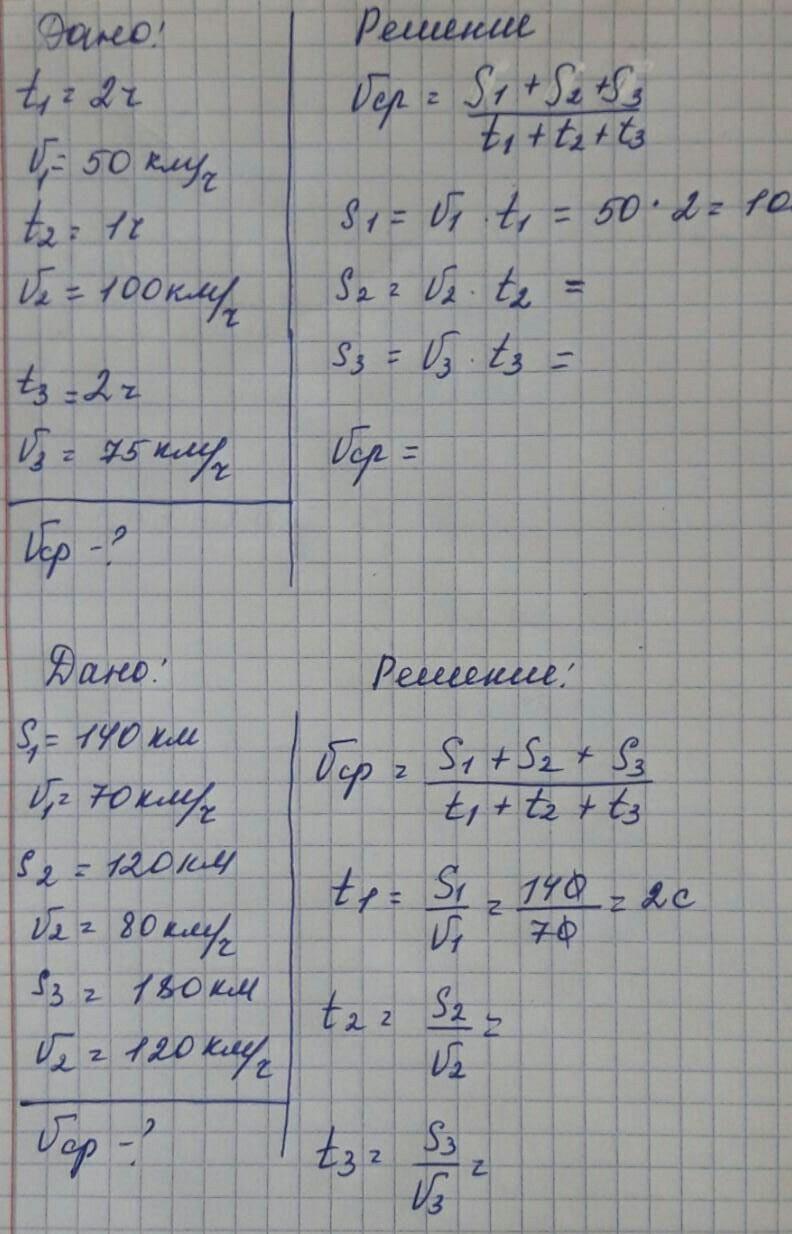 Дано:
t₁ = 2ч
v₁ = 50 км/ч
t₂ = 1ч
v₂ = 100 км/ч
t₃ = 2ч
v₃ = 75 км/ч
vср - ?
Решение
vср = (S₁ + S₂ + S₃) / (t₁ + t₂ + t₃)
S₁ = v₁ · t₁ = 50 · 2 = 10
S₂ = v₂ · t₂ =
S₃ = v₃ · t₃ =
vср =
Дано:
S₁ = 140 км
v₁ = 70 км/ч
S₂ = 120 км
v₂ = 80 км/ч
S₃ = 180 км
v₂ = 120 км/ч
vср - ?
Решение:
vср = (S₁ + S₂ + S₃) / (t₁ + t₂ + t₃)
t₁ = S₁ / v₁ = 140 / 70 = 2с
t₂ = S₂ / v₂ =
t₃ = S₃ / v₃ =